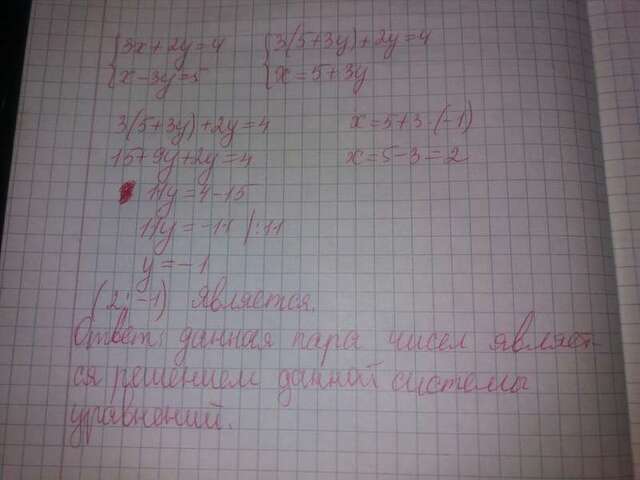 {3x+2y=4 {3(5+3y)+2y=4
{x-3y=5 {x=5+3y
3(5+3y)+2y=4 x=5+3·(-1)
15+9y+2y=4 x=5-3=2
11y=4-15
11y=-11 |:11
y=-1
(2;-1) является.
Ответ: данная пара чисел являет-
ся решением данной системы
уравнений.